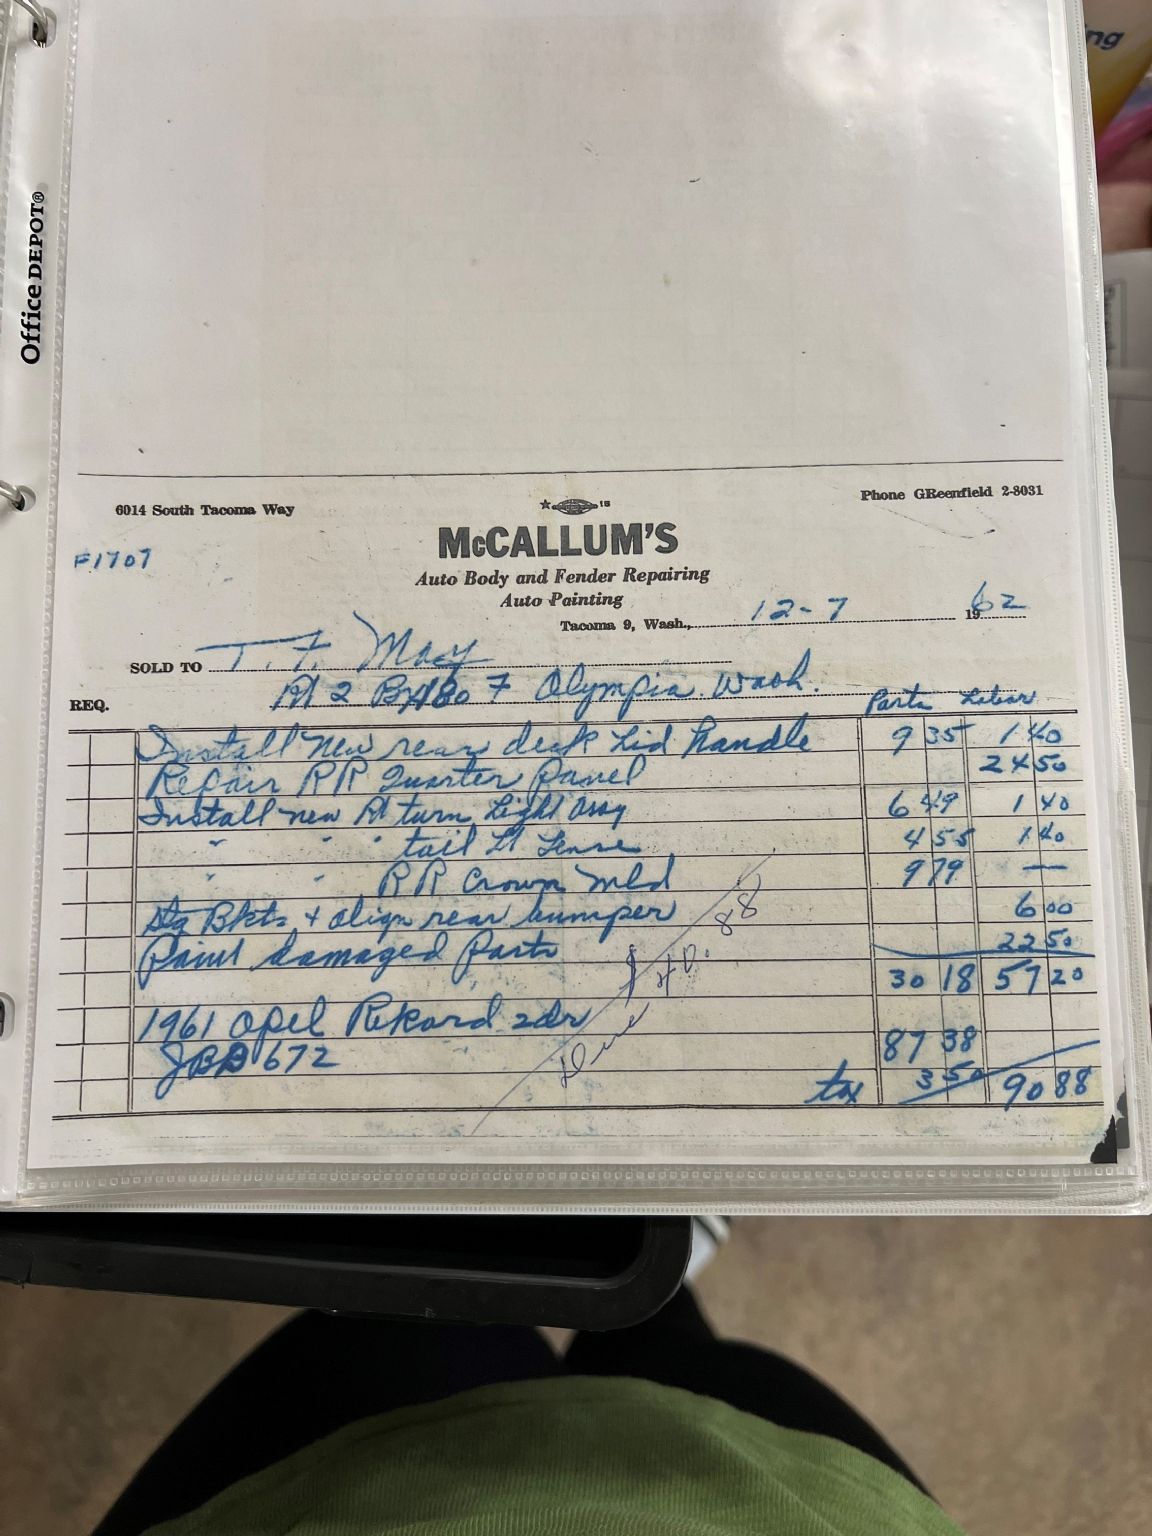 ng
Office DEPOT®
6014 South Tacoma Way
Phone GReenfield 2-8031
McCALLUM'S
F1707
Auto Body and Fender Repairing
Auto Painting
Tacoma 9, Wash., 12-7 1962
SOLD TO T. F. Macy
Rt 2 Bx 480 F Olympia Wash.
REQ. Parts Labor
Install new rear deck Lid handle 9 35 1 40
Repair RR Quarter Panel 24 50
Install new Rt turn Light assy 6 49 1 40
" " " tail Lt Lense 4 55 1 40
" " RR Crown Mld 9 79 —
Stg Bkts + align rear bumper 6 00
Paint damaged Parts 22 50
30 18 57 20
$ 40.88
1961 Opel Rekord 2dr
JBB 672 87 38
tax 3 50 90 88